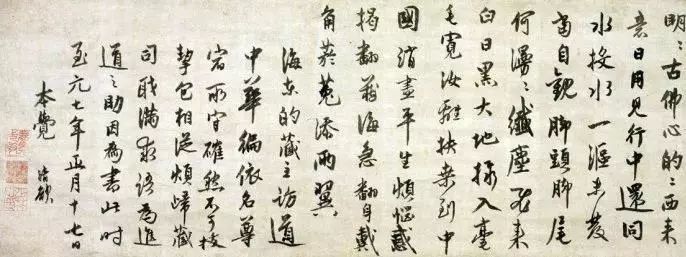 明々古佛心的々西来
意日月見行中還同
水投水一漚未發
當自觀脚頭脚尾
何漫々纖塵飛来
白日黑大地攝入毫
毛寬汝離扶桒到中
國消盡平生煩惱惑
揭翻海急翻身戴
角菸菟添兩翼
海東的藏主訪道
中華徧依名尊
宿所守確然不可拔
挈包相從煩歸藏
司職滿求語爲進
道之助因爲書此時
至元七年正月十七日
本覺 清欲